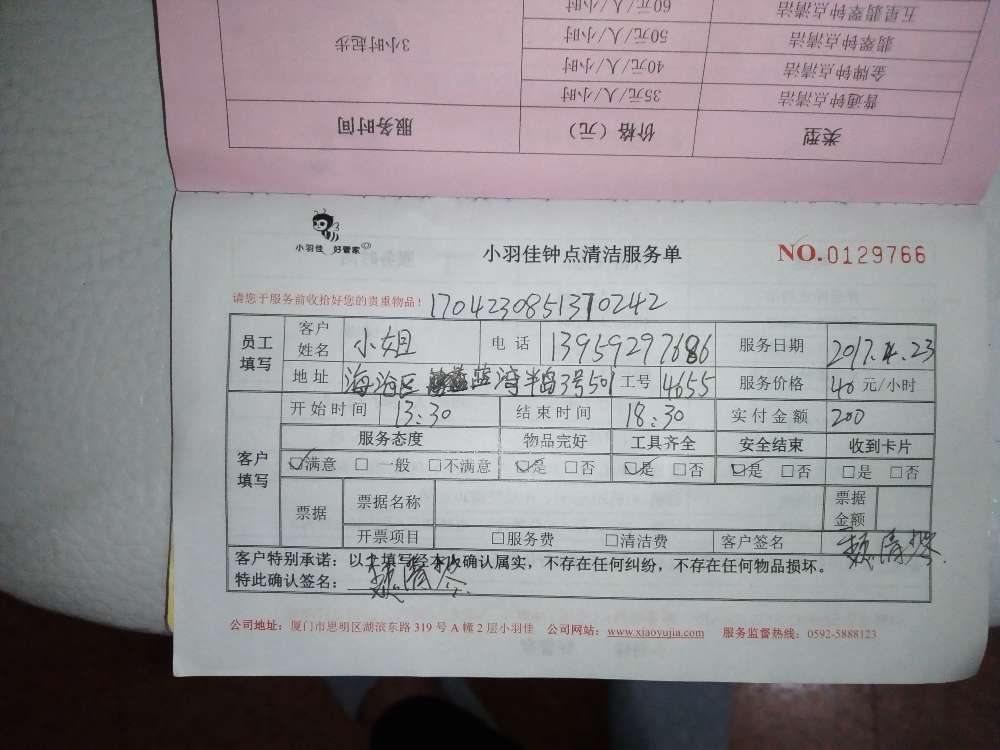 五星翡翠钟点清洁 60元/人/小时
翡翠钟点清洁 50元/人/小时 3小时起步
金牌钟点清洁 40元/人/小时
普通钟点清洁 35元/人/小时
类型 价格（元） 服务时间
小羽佳 好管家
小羽佳钟点清洁服务单
NO.0129766
请您于服务前收拾好您的贵重物品！
1704230851370242
员工填写 客户姓名 小姐 电话 13959297686 服务日期 2017.4.23
地址 海沧区 蓝湾半岛3号501 工号 4655 服务价格 40 元/小时
客户填写 开始时间 13:30 结束时间 18:30 实付金额 200
服务态度 物品完好 工具齐全 安全结束 收到卡片
☑满意 □一般 □不满意 ☑是 □否 ☑是 □否 ☑是 □否 □是 □否
票据 票据名称 票据金额
开票项目 □服务费 □清洁费 客户签名
客户特别承诺：以上填写经本人确认属实，不存在任何纠纷，不存在任何物品损坏。
特此确认签名：
公司地址：厦门市思明区湖滨东路 319 号 A 幢 2 层小羽佳 公司网站：www.xiaoyujia.com 服务监督热线：0592-5888123